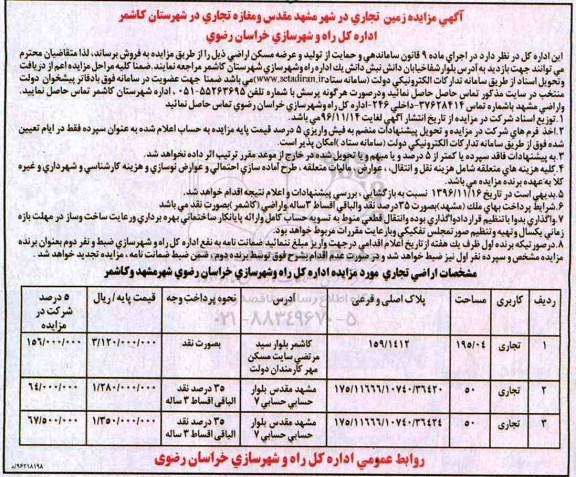 آگهي مزايده زمين تجاري در شهر مشهد مقدس ومغازه تجاري در شهرستان كاشمر
اداره كل راه و شهرسازي خراسان رضوي
اين اداره كل در نظر دارد در اجراي ماده ۹ قانون ساماندهي و حمايت از توليد و عرضه مسكن اراضي ذيل را از طريق مزايده به فروش برساند، لذا متقاضيان محترم
مي توانند جهت بازديد به آدرس بلوار شفا خيابان دانش نبش دانش يك اداره راه وشهرسازي شهرستان كاشمر مراجعه نمايند. ضمنا كليه مراحل مزايده اعم از دريافت
و تحويل اسناد از طريق سامانه تداركات الكترونيكي دولت (سامانه ستاد www.setadiran.ir)مي باشد ضمنا جهت عضويت در سامانه فوق بادفاتر پيشخوان دولت
منتخب در سايت مذكور تماس حاصل نماييد ودرصورت هر گونه پرسش با شماره تلفن ۵۵۲۶۳۶۹۵-۰۵۱ ، اداره شهرستان كاشمر تماس حاصل نماييد.
واراضي مشهد باشماره تماس ۳۷۶۲۸۴۱۴-داخلي ۲۴۶-اداره كل راه وشهرسازي خراسان رضوي تماس حاصل نمائيد
۱.توزيع اسناد شركت در مزايده از تاريخ انتشار آگهي لغايت ۹۶/۱۱/۱۴مي باشد.
۲.اخذ فرم هاي شركت در مزايده و تحويل پيشنهادات منضم به فيش واريزي ۵ درصد قيمت پايه مزايده به حساب اعلام شده به عنوان سپرده فقط در ايام تعيين
شده فوق از طريق سامانه تداركات الكترونيكي دولت (سامانه ستاد )امكان پذير است.
۳.به پيشنهادات فاقد سپرده يا كمتر از ۵ درصد و يا مبهم و يا تحويل شده در خارج از موعد مقرر ترتيب اثر داده نخواهد شد.
۴.كليه هزينه هاي متعلقه شامل هزينه نقل و انتقال ، ، عوارض ، ماليات متعلقه ، طرح آماده سازي احتمالي و عوارض نوسازي و هزينه كارشناسي و شهرداري و غيره
كلا به عهده برنده مزايده مي باشد.
۵.بديهي است در تاريخ ۱۳۹۶/۱۱/۱۶ نسبت به بازگشايي ، بررسي پيشنهادات و اعلام نتيجه اقدام خواهد شد.
۶.شرايط پرداخت بهاي ملك (مشهد)بصورت ۳۵درصد نقد والباقي اقساط ۳ساله واراضي (كاشمر)بصورت نقد مي باشد
۷.واگذاري بدوا با تنظيم قرارداد واگذاري بوده وانتقال قطعي منوط به تسويه حساب كامل وارائه پايانكار ساختماني بهره برداري ورعايت ساخت وساز در مهلت بازه
زماني يكسال وتهيه و تنظيم صورتمجلس تفكيكي وبارعايت مقررات مربوط خواهد بود.
۸.درصورتيكه برنده اول ظرف يك هفته از تاريخ اعلام اقدامي در جهت واريز مبلغ ننمائيد ضمانت نامه به نفع اداره كل راه و شهرسازي ضبط و نفر دوم بعنوان برنده
مزايده مشخص و سپرده نفر اول نيز ضبط خواهد شد و در صورت عدم اقدام بشرح فوق توسط برنده دوم، ضمن ضبط ضمانت نامه، مزايده تجديد خواهد شد .
مشخصات اراضي تجاري مورد مزايده اداره كل راه وشهرسازي خراسان رضوي شهرمشهد وكاشمر
رديف | كاربري | مساحت | پلاك اصلي و فرعي | آدرس | نحوه پرداخت وجه | قيمت پايه / ريال | ۵ درصد شركت در مزايده
۱ | تجاري | ۱۹۵/۰۴ | ۱۵۹/۱۴۱۲ | كاشمر بلوار سيد مرتضي سايت مسكن مهر كارمندان دولت | بصورت نقد | ۳/۱۲۰/۰۰۰/۰۰۰ | ۱۵۶/۰۰۰/۰۰۰
۲ | تجاري | ۵۰ | ۱۷۵/۱۱۶۶۶/۱۰۷۴۰/۳۶۴۲۰ | مشهد مقدس بلوار حسابي حسابي ۷ | ۳۵ درصد نقد الباقي اقساط ۳ ساله | ۱/۲۸۰/۰۰۰/۰۰۰ | ۶۴/۰۰۰/۰۰۰
۳ | تجاري | ۵۰ | ۱۷۵/۱۱۶۶۶/۱۰۷۴۰/۳۶۴۲۴ | مشهد مقدس بلوار حسابي حسابي ۷ | ۳۵ درصد نقد الباقي اقساط ۳ ساله | ۱/۳۵۰/۰۰۰/۰۰۰ | ۶۷/۵۰۰/۰۰۰
۰۲۱-۸۸۳۴۹۶۷۰-۵
روابط عمومي اداره كل راه و شهرسازي خراسان رضوي
۹۶۲۱۸۱۹۸/م